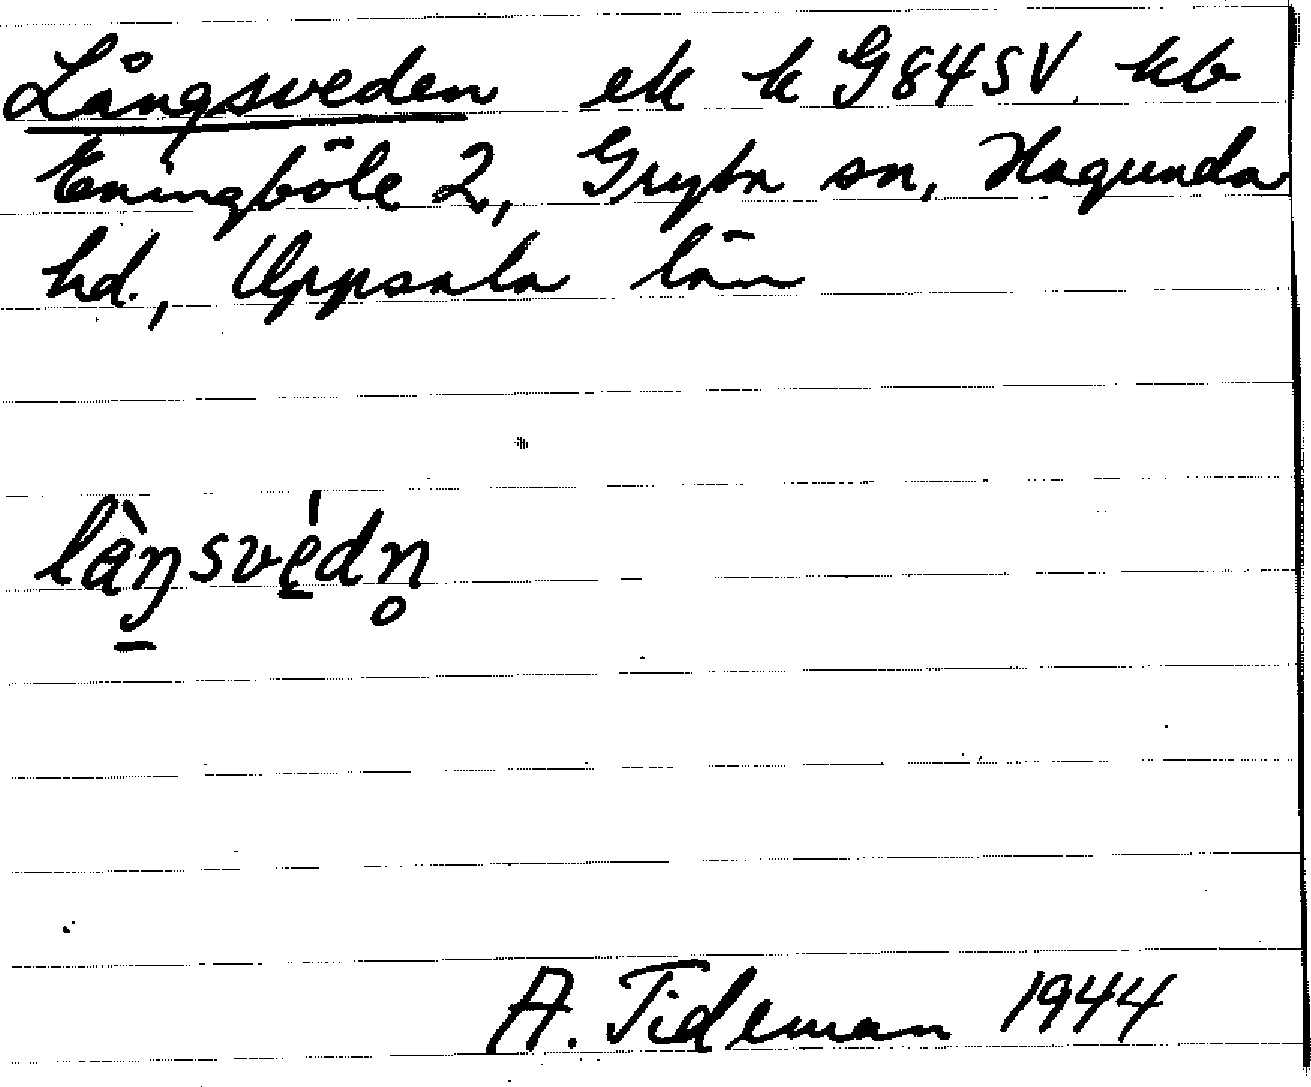 Långsveden ek k G84SV kb
Eningböle 2, Gryta sn, Hagunda
hd., Uppsala län
làŋsvédn̥
A. Tideman 1944